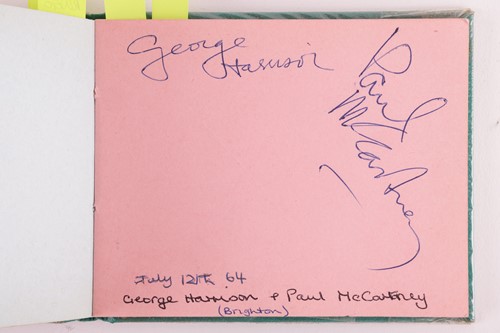 George
Harrison
Paul
McCartney
July 12th 64
George Harrison & Paul McCartney
(Brighton)